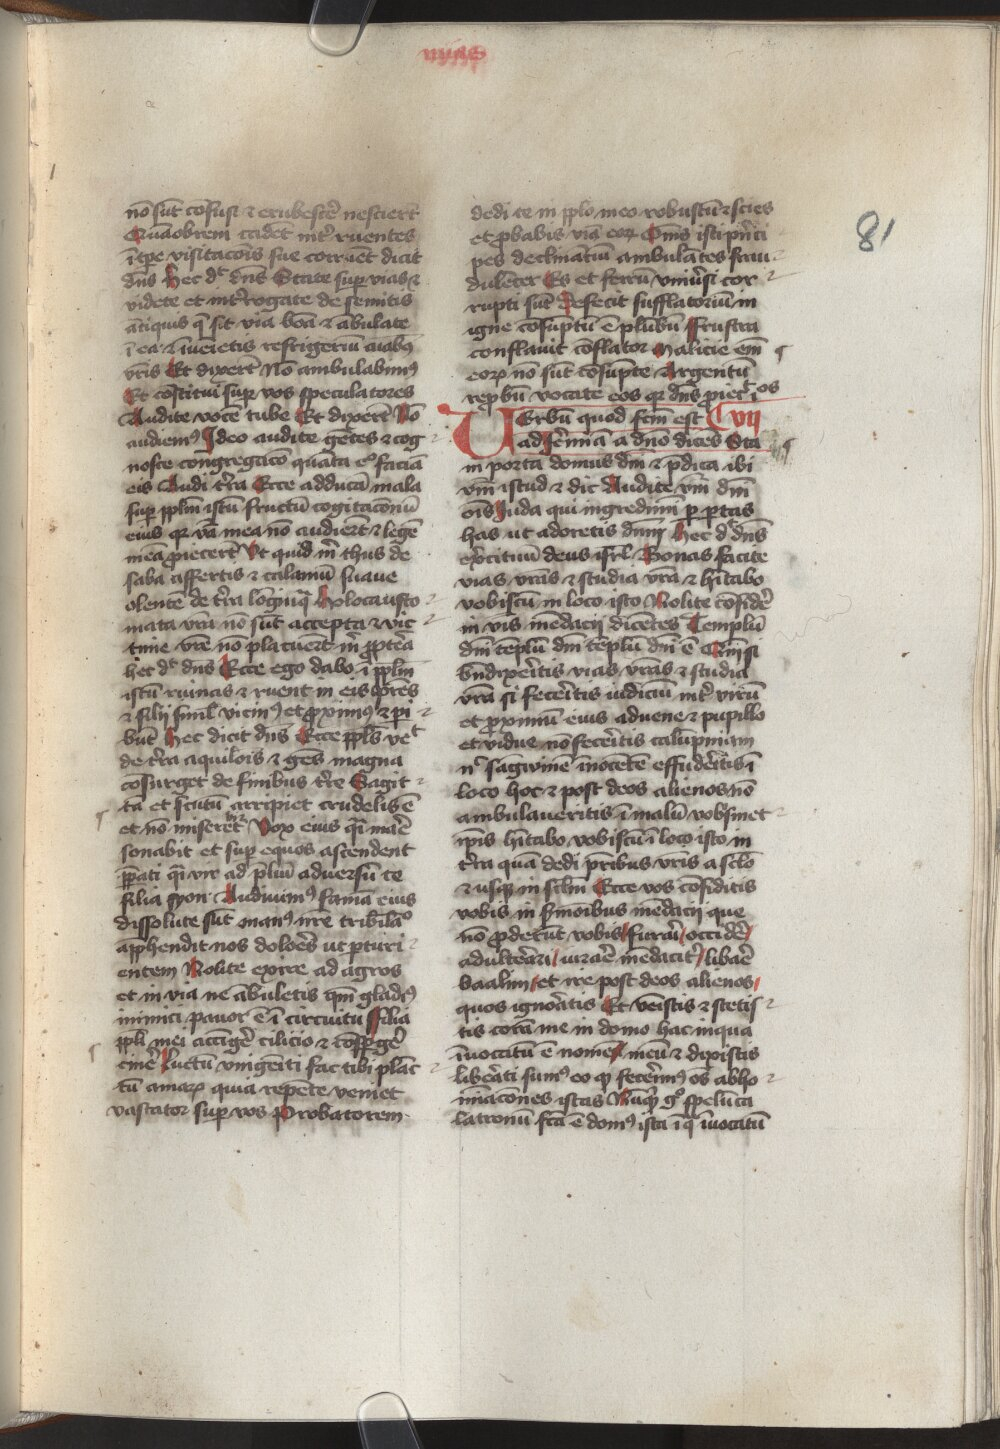 mias
nō sūt cōfusi ⁊ erubescē nescierūt
Quāobrem cadēt int͛ ruentes
ī tp̄e visitacōis sue corruēt dicit
dn̄s Hec dt dn̄s State sup vias ⁊
videte et int͛rogate de semitis
ātiquis q̄ sit via bōa ⁊ ābulate
ī ea ⁊ īueietis refrigeriū aīabꝰ
vr̄is Et dixer̄t Nō ambulabimꝰ
Et cōstitui sup vos speculatores
Audite vocē tube Et dixer̄t Nō
audiemꝰ Ideo audite gētes ⁊ cog
nosce congregacō quāta eº faciā
eis Audi t͛ra Ecce adducā mala
sup pplm̄ istū fructū cogitaconū
eius qr v̄ba mea nō audier̄t ⁊ legē
meā ꝓiecer̄t Vt quid m̄ thus de
saba affertis ⁊ calamū suaue
olentē de t͛ra lōginq̄ Holocausto
mata vr̄a nō sūt accepta ⁊ vic
time vr̄e nō placuer̄t m̄ ꝓpt͛ea
hec dt dn̄s Ecce ego dabo ī pplm̄
istū ruinas ⁊ ruent in eis pr̄es
⁊ filij simł vicinꝰ et ꝓximꝰ ⁊ pi
būt Hec dicit dn̄s Ecce ppls̄ vēt
de t͛ra aquilōis ⁊ gēs magna
cōsurget de finibus t͛re Sagit
tā et scutū arripiet crudelis ē
et nō miserebitr Vox eius q̄i maē
sonabit et sup equos ascendent
p̄pati q̄i vir ad p̄liū aduersū te
filia syon Audiuimꝰ famā eius
dissolute sūt manꝰ nr̄e tribl̄acº
app̄hendit nos doloēs ut pturi
entem Nolite exire ad agros
et in via ne ābuletis qm̄ gladꝰ
inimici pauor ē ī circuitu Ffilia
ppli mei accīgē cilicio ⁊ cōspgē
cinē Luctū vnigeīti fac tibi plāc
tū amarꝝ quia repēte veniet
vastator sup vos Probatorem
dedi te in pplo meo robustū ⁊ scies
et ꝓbabis viā eoꝝ Om̄s isti pn̄ci
pes declinātiū ambulātes frau
dulēter Es et ferrū vniūsi cor
rupti sūt Defecit sufflatoriū in
igne cōsūptū ē plūbū Ffrustra
conflauit cōflator Malicie em̄
eoꝝ nō sūt cōsūpte Argentū
rep̄bū vocate eos qr dn̄s ꝓiecit ios
VErbū quod fcm̄ est C vij
ad Ier̄mia a dn̄o dicēs Sta
in porta domus dn̄i ⁊ p̄dica ibi
vm̄ istud ⁊ dic Audite vm̄ dn̄i
ōis Iuda qui ingredimī p ptas
has ut adoretis dnm̄ Hec dt dn̄s
ex͛cituū deus isrl Bonas facite
vias vr̄as ⁊ studia vr̄a ⁊ hītabo
vobiscū in loco isto Nolite cōfidē
in v̄is mēdacij dicētes Templū
dn̄i tēplū dn̄i tēplū dn̄i ē Qm̄ si
bn̄dixeītis vias vr̄as ⁊ studia
vr̄a si feceītis iudiciū int͛ virū
et ꝓximū eius aduene ⁊ pupillo
et vidue nō feceītis calūpniam
nc sagwinē īnocētē effudeītis ī
loco hoc ⁊ post deos alienos nō
ambulaueritis ī malū vobismet
ip̄is hītabo vobiscū ī loco isto in
t͛ra quā dedi pribus vr̄is a sclō
⁊ usqꝫ in sclm̄ Ecce vos cōfiditis
vobis in s͛monibus mēdacij que
nō ꝓderūt vobis furaī occidē
adulteāri iuraē mēdacit͛ libaē
baalim et ire post deos alienos
quos ignoātis Et venistis ⁊ stetis
tis corā me in domo hac in qua
īuocatū ē nomē meū ⁊ dixistis
libeāti sumꝰ eo qꝫ fecerimꝰ oēs abho
minacōnes istas Nūqꝫ gº spelūca
latronū fca ē domꝰ ista ī q̄ īuocatū
81